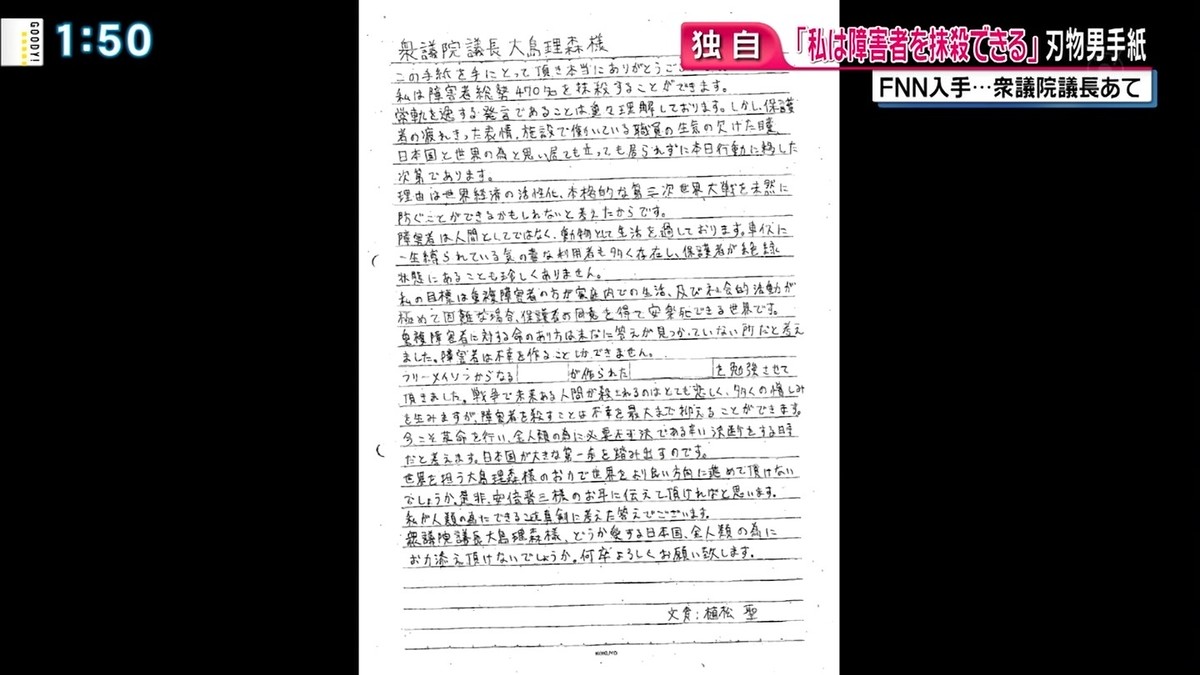 GOODY!
1:50
独自
「私は障害者を抹殺できる」刃物男手紙
FNN入手…衆議院議長あて
衆議院議長大島理森様
この手紙を手にとって頂き本当にありがとうご
私は障害者総勢470名を抹殺することができます。
常軌を逸する発言であることは重々理解しております。しかし、保護
者の疲れきった表情、施設で働いている職員の生気の欠けた瞳、
日本国と世界の為と思い居ても立っても居られずに本日行動に移した
次第であります。
理由は世界経済の活性化、本格的な第三次世界大戦を未然に
防ぐことができるかもしれないと考えたからです。
障害者は人間としてではなく、動物として生活を過しております。車イスに
一生縛られている気の毒な利用者も多く存在し、保護者が絶縁
状態にあることも珍しくありません。
私の目標は重複障害者の方が家庭内での生活、及び社会的活動が
極めて困難な場合、保護者の同意を得て安楽死できる世界です。
重複障害者に対する命のあり方は未だに答えが見つかっていない所だと考え
ました。障害者は不幸を作ることしかできません。
フリーメイソンからなる が作られた を勉強させて
頂きました。戦争で未来ある人間が殺されるのはとても悲しく、多くの憎しみ
を生みますが、障害者を殺すことは不幸を最大まで抑えることができます。
今こそ革命を行い、全人類の為に必要不可決である辛い決断をする時
だと考えます。日本国が大きな第一歩を踏み出すのです。
世界を担う大島理森様のお力で世界をより良い方向に進めて頂けない
でしょうか。是非、安倍晋三様のお耳に伝えて頂ければと思います。
私が人類の為にできることを真剣に考えた答えでございます。
衆議院議長大島理森様、どうか愛する日本国、全人類の為に
お力添え頂けないでしょうか。何卒よろしくお願い致します。
文責：植松 聖
KOKUYO